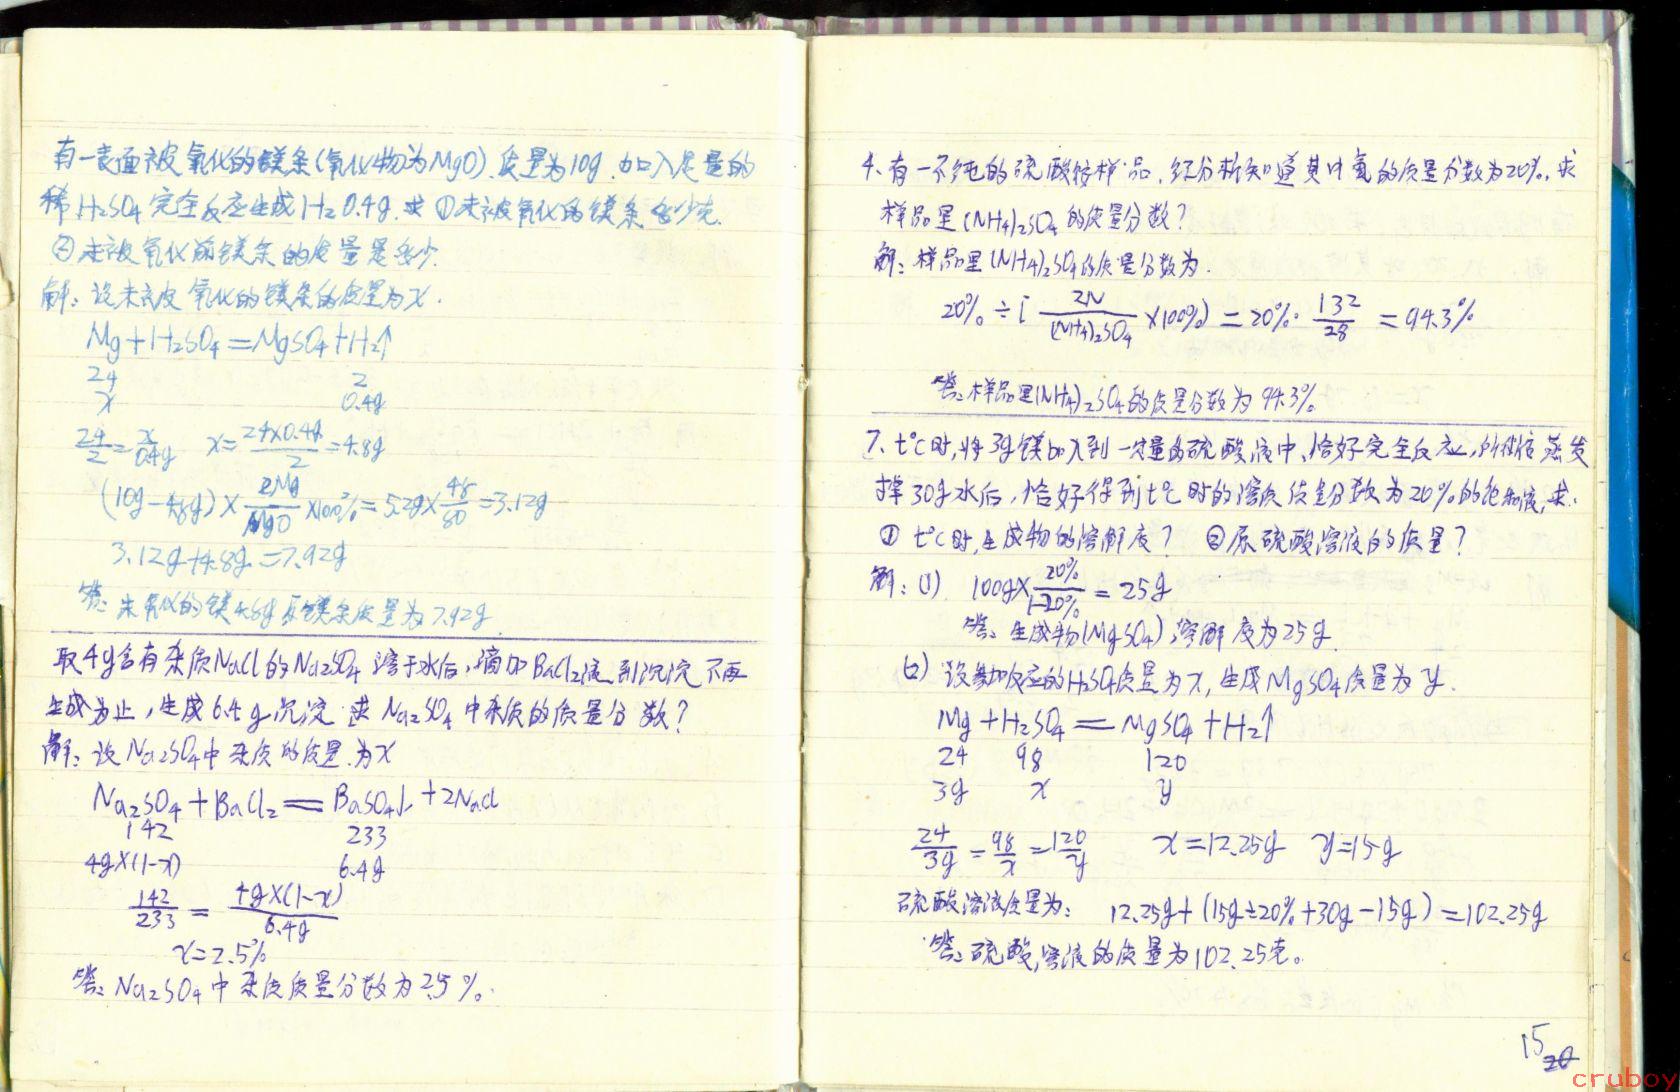 有一表面被氧化的镁条(氧化物为MgO).质量为10g.加入足量的
稀H₂SO₄完全反应生成H₂0.4g.求①未被氧化的镁条多少克.
②未被氧化前镁条的质量是多少.
解:设未被氧化的镁条的质量为x.
Mg+H₂SO₄=MgSO₄+H₂↑
24 2
x 0.4g
24/2=x/0.4g x=24×0.4g/2=4.8g
(10g-4.8g)×Mg/MgO×100%=5.2g×48/80=3.12g
3.12g+4.8g=7.92g
答:未氧化的镁4.8g原镁条质量为7.92g.
取4g含有杂质NaCl的Na₂SO₄溶于水后,滴加BaCl₂液到沉淀不再
生成为止,生成6.4g沉淀.求Na₂SO₄中杂质的质量分数?
解:设Na₂SO₄中杂质的质量为x
Na₂SO₄+BaCl₂=BaSO₄↓+2NaCl
142 233
4g×(1-x) 6.4g
142/233=4g×(1-x)/6.4g
x=2.5%
答:Na₂SO₄中杂质质量分数为2.5%.
4.有一不纯的硫酸铵样品,经分析知道其中氮的质量分数为20%.求
样品里(NH₄)₂SO₄的质量分数?
解:样品里(NH₄)₂SO₄的质量分数为.
20%÷[2N/(NH₄)₂SO₄×100%)=20%·132/28=94.3%
答:样品里(NH₄)₂SO₄的质量分数为94.3%
7.t℃时,将3g镁加入到一定量的硫酸液中,恰好完全反应,所得液蒸发
掉30g水后,恰好得到t℃时的溶质质量分数为20%的饱和液,求.
①t℃时,生成物的溶解度? ②原硫酸溶液的质量?
解:(1) 100g×20%/1-20%=25g
答:生成物(MgSO₄)溶解度为25g.
(2)设参加反应的H₂SO₄质量为x,生成MgSO₄质量为y.
Mg+H₂SO₄=MgSO₄+H₂↑
24 98 120
3g x y
24/3g=98/x=120/y x=12.25g y=15g
硫酸溶液质量为: 12.25g+(15g÷20%+30g-15g)=102.25g
答:硫酸溶液的质量为102.25克。
15
20
cruboy